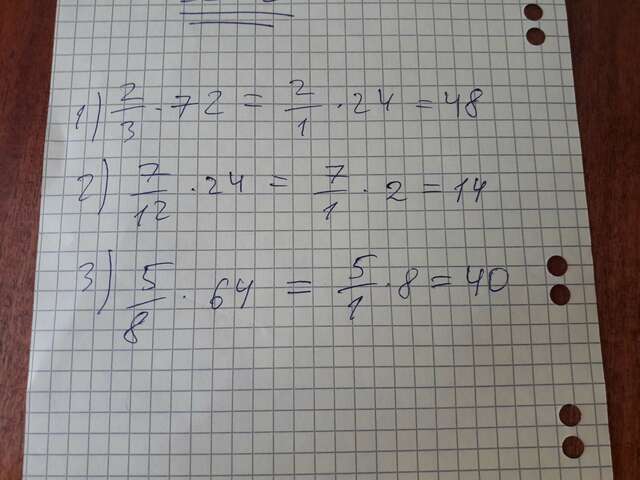 1) 2/3 · 72 = 2/1 · 24 = 48
2) 7/12 · 24 = 7/1 · 2 = 14
3) 5/8 · 64 = 5/1 · 8 = 40